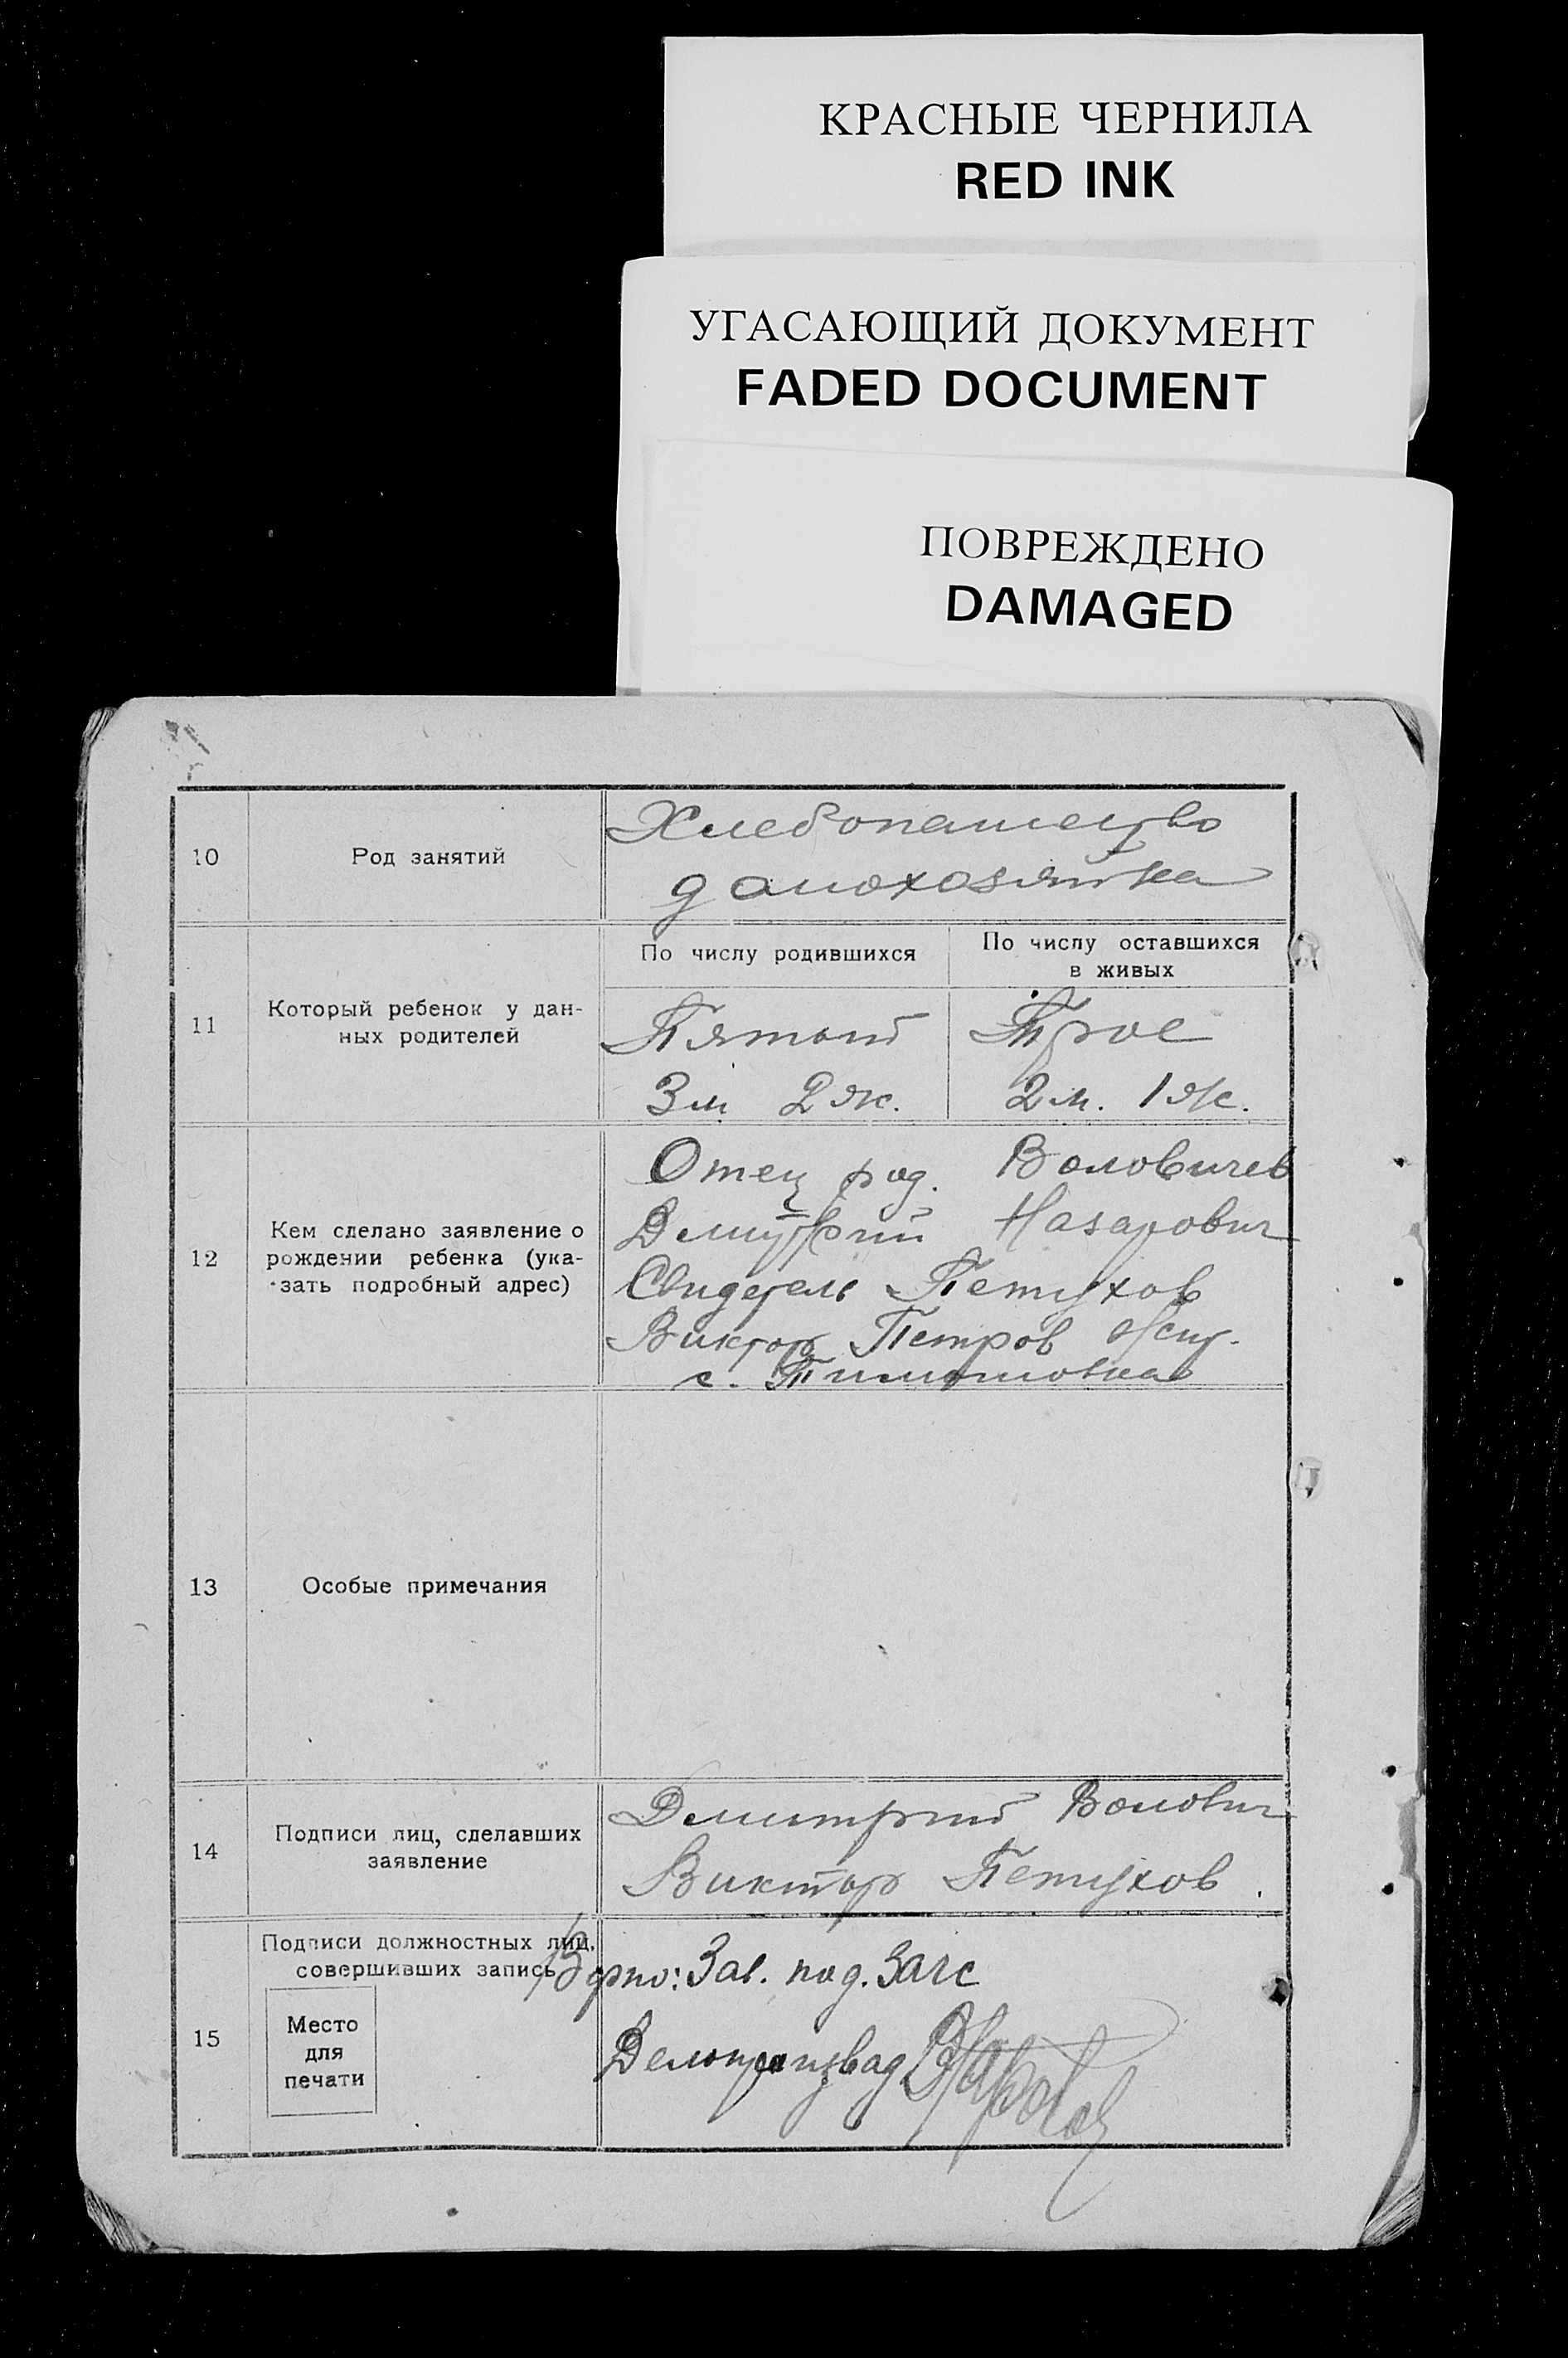 КРАСНЫЕ ЧЕРНИЛА
RED INK
УГАСАЮЩИЙ ДОКУМЕНТ
FADED DOCUMENT
ПОВРЕЖДЕНО
DAMAGED
10
Род занятий
Хлебопашество
домохозяйка
11
Который ребенок у дан-
ных родителей
По числу родившихся
По числу оставшихся
в живых
Пятый
Трое
3 м 2 ж.
2 м. 1 ж.
12
Кем сделано заявление о
рождении ребенка (ука-
зать подробный адрес)
Отец род. Воловичев
Дмитрий Назарович
Свидетель Петухов
Виктор Петров жит.
с. Тимошовка
13
Особые примечания
14
Подписи лиц, сделавших
заявление
Дмитрий Волович
Виктор Петухов.
15
Подписи должностных лиц,
совершивших запись
Место
для
печати
Верно: Зав. под. Загс
Делопроизвод